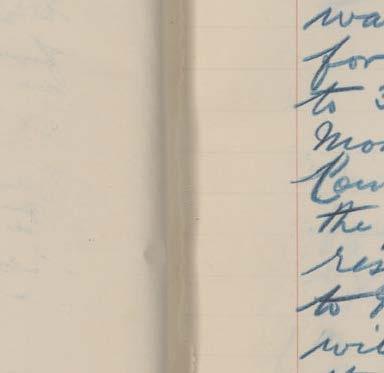 wa
for
to 3
Mon
Cou
the
res
to
wil